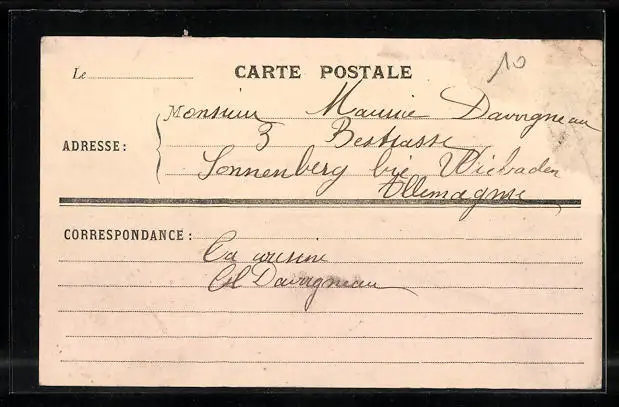 10
Le
CARTE POSTALE
ADRESSE:
Monsieur Maurice Davrigneau
3 Bestrasse
Sonnenberg bie Wiebaden
Allemagne
CORRESPONDANCE:
Ta cousine
Davrigneau